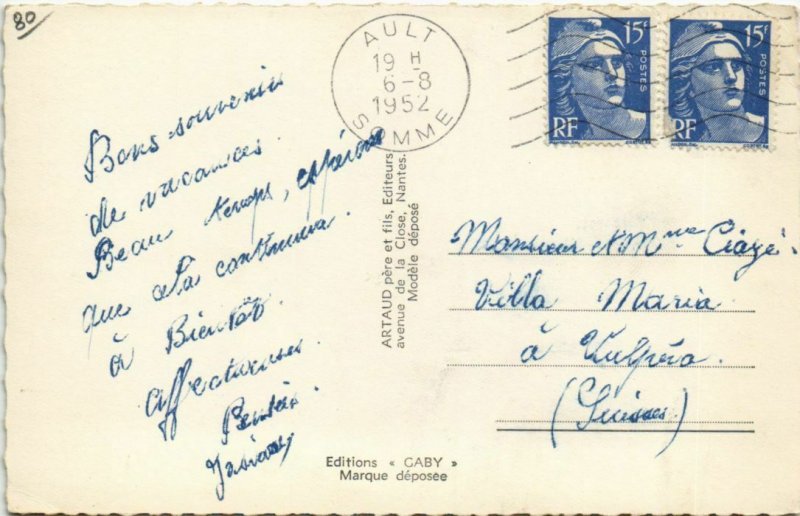 80
Bons souvenirs
de vacances.
Beau temps, espérons
que cela continuera.
à Bientôt
affectueuses
AULT
19 H
6-8
1952
SOMME
15F
POSTES
RF
15F
POSTES
RF
ARTAUD père et fils, Editeurs
avenue de la Close, Nantes.
Modèle déposé
Monsieur et Mme
Villa Maria
à Vulpéra.
(Suisse)
Editions « GABY »
Marque déposée